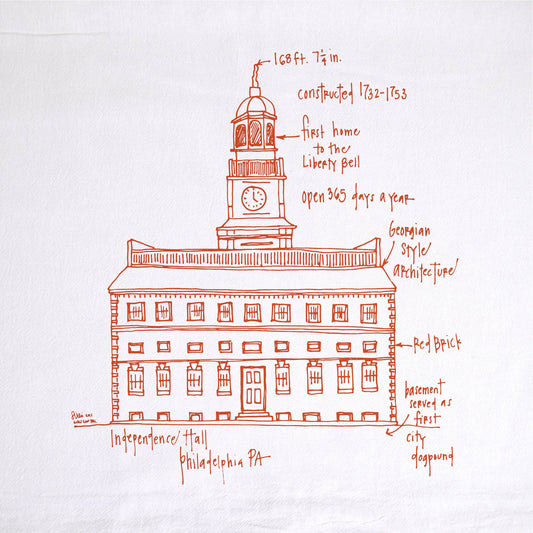 168 ft. 7 1/4 in.
constructed 1732-1753
first home
to the
Liberty Bell
open 365 days a year
Georgian
style
architecture
Red Brick
basement
served as
first
city
dogpound
Independence Hall
philadelphia PA